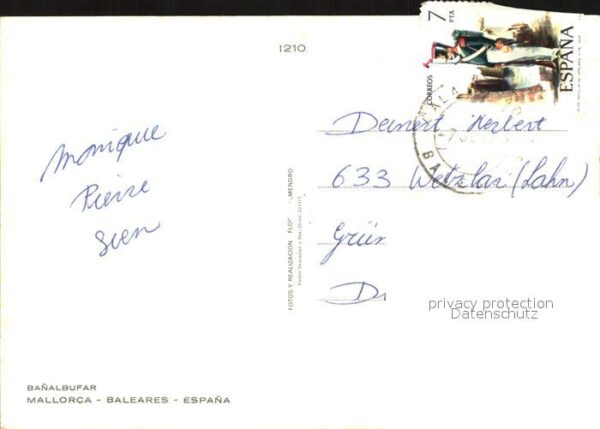 1210
7
PTA
CORREOS
ESPAÑA
Monique
Pierre
Sven
Deinert Herbert
633 Wetzlar (Lahn)
Grün
D
FOTOS Y REALIZACION FLOR MENDRO
privacy protection
Datenschutz
BAÑALBUFAR
MALLORCA - BALEARES - ESPAÑA